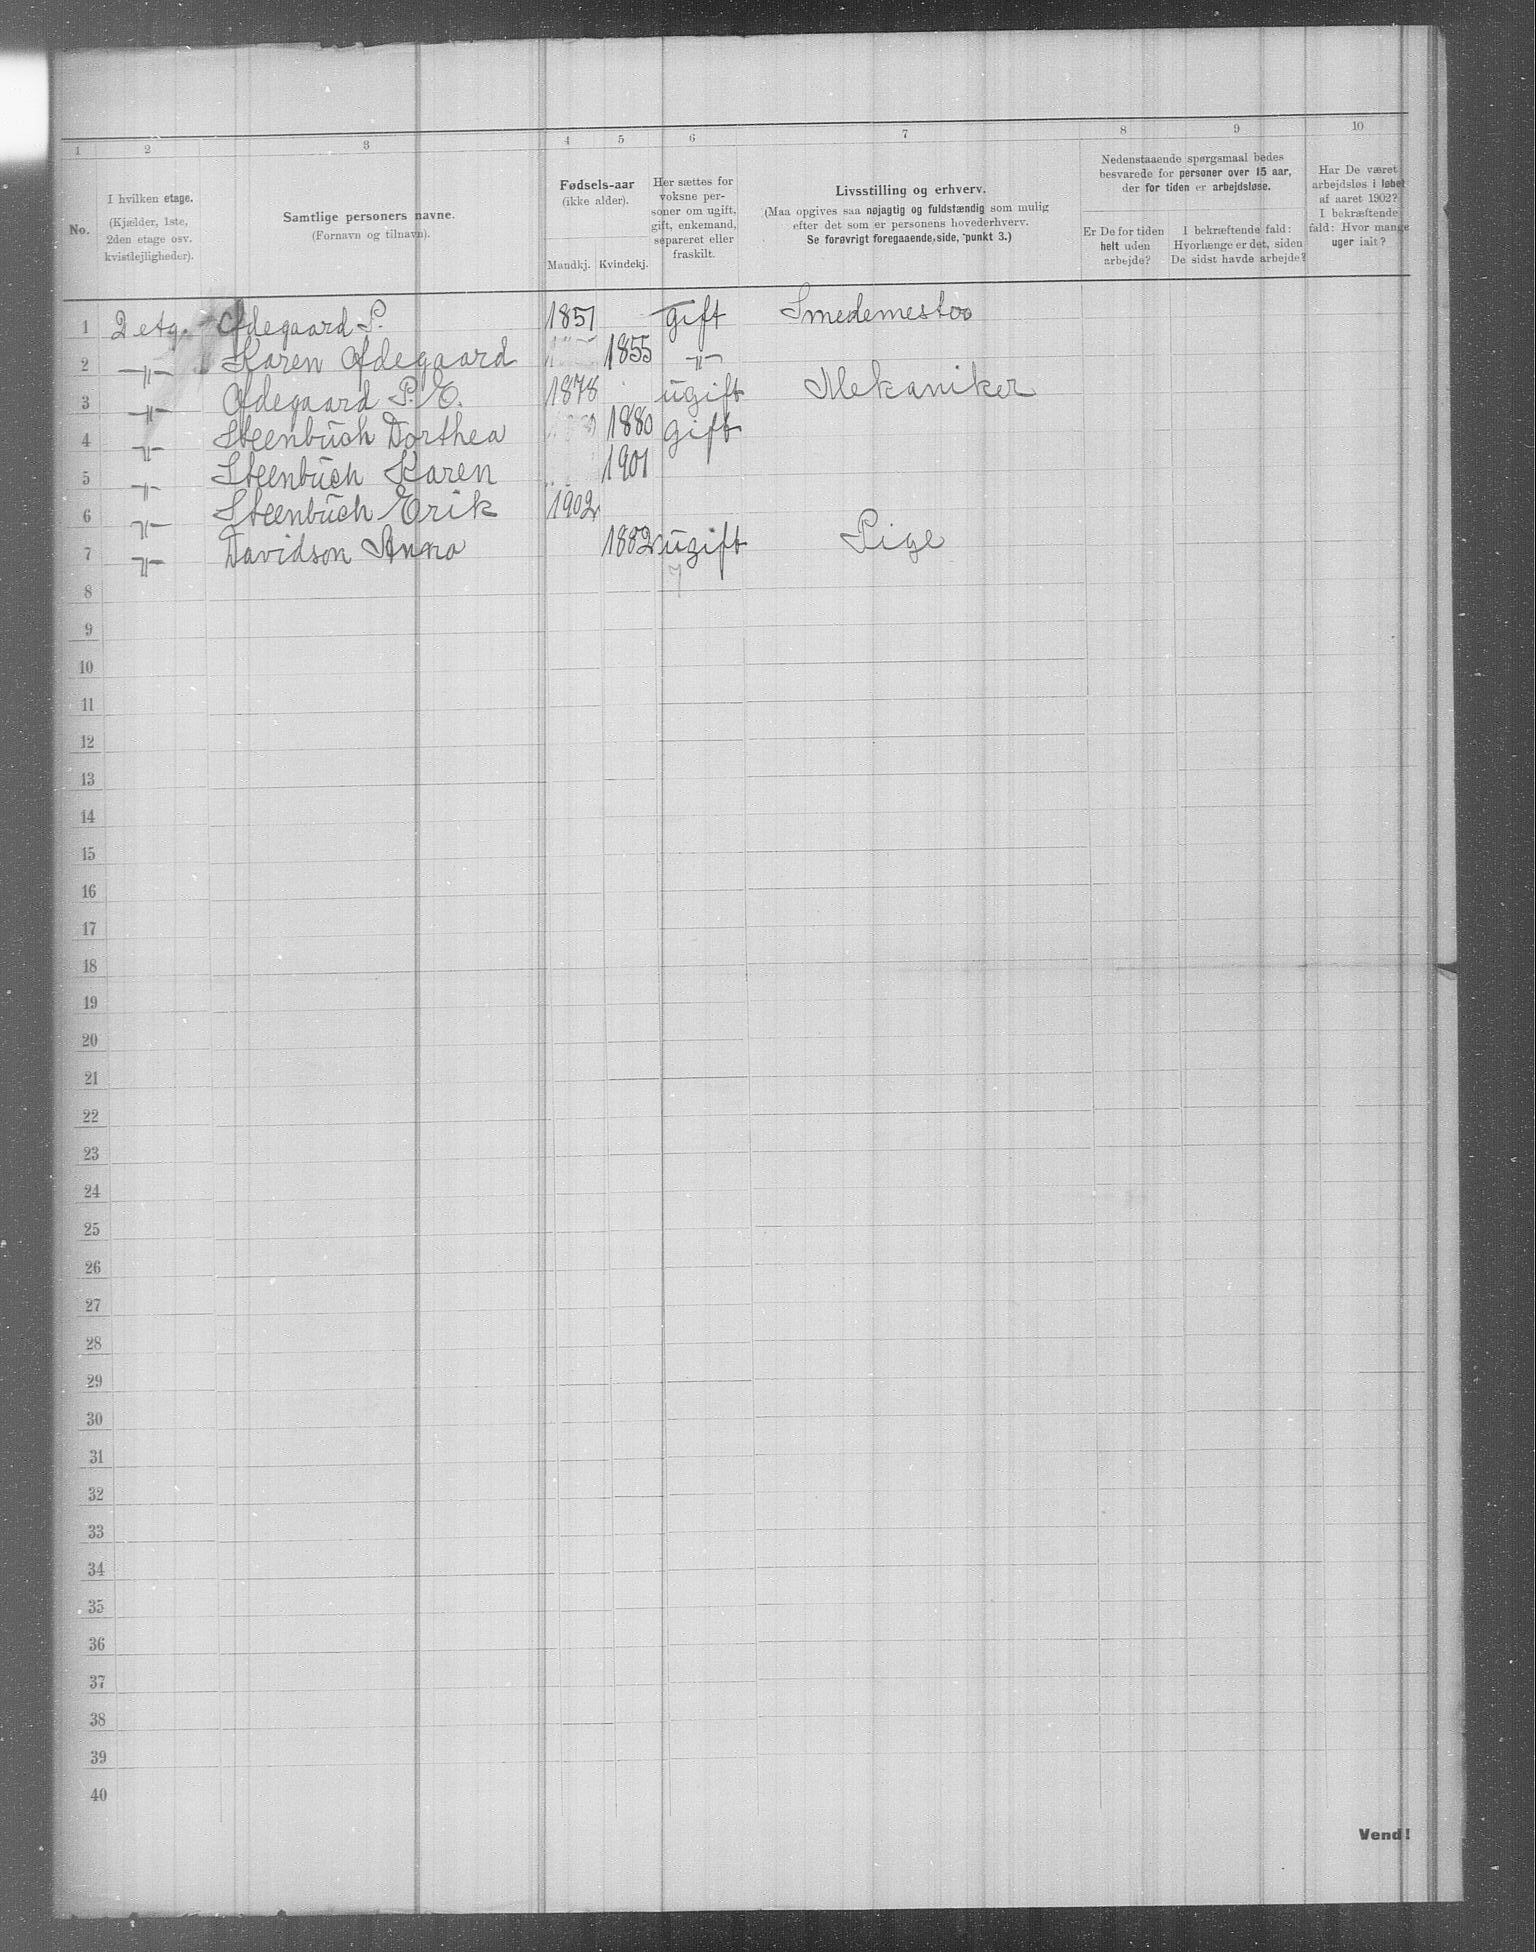 1 2 3 4 5 6 7 8 9 10
No.
I hvilken etage.
(Kjælder, 1ste,
2den etage osv.
kvistlejligheder).
Samtlige personers navne.
(Fornavn og tilnavn).
Fødsels-aar
(ikke alder).
Mandkj. Kvindekj.
Her sættes for
voksne per-
soner om ugift,
gift, enkemand,
separeret eller
fraskilt.
Livsstilling og erhverv.
(Maa opgives saa nøjagtig og fuldstændig som mulig
efter det som er personens hovederhverv.
Se forøvrigt foregaaende side, punkt 3.)
Nedenstaaende spørgsmaal bedes
besvarede for personer over 15 aar,
der for tiden er arbejdsløse.
Er De for tiden
helt uden
arbejde?
I bekræftende fald:
Hvorlænge er det, siden
De sidst havde arbejde?
Har De været
arbejdsløs i løbet
af aaret 1902?
I bekræftende
fald: Hvor mange
uger ialt?
1 2 etg. Ødegaard P. 1851 gift Smedemester
2 -"- Karen Ødegaard 1855 -"-
3 -"- Ødegaard P. E. 1878 ugift Mekaniker
4 -"- Steenbuch Dorthea 1880 gift
5 -"- Steenbuch Karen 1901
6 -"- Steenbuch Erik 1902
7 -"- Davidson Anna 1882 ugift Pige
7
8
9
10
11
12
13
14
15
16
17
18
19
20
21
22
23
24
25
26
27
28
29
30
31
32
33
34
35
36
37
38
39
40
Vend!